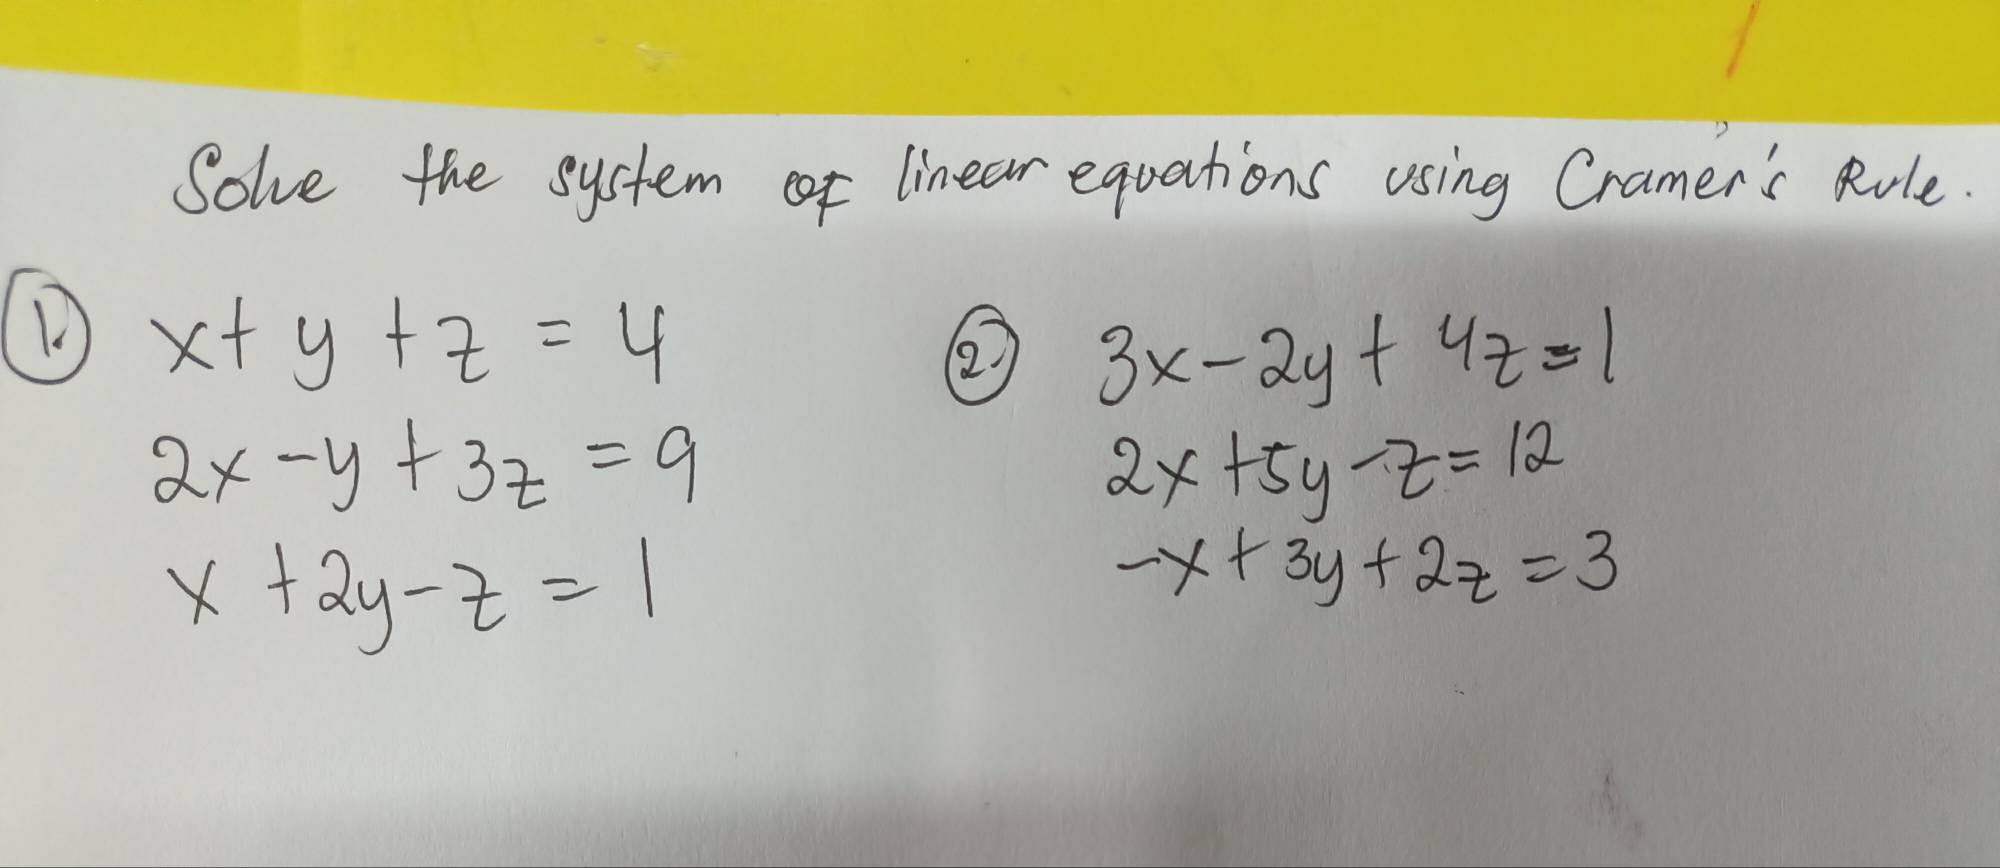 Solve the system of linear equations using Cramer's Rule.
1. x + y + z = 4
2x - y + 3z = 9
x + 2y - z = 1
2. 3x - 2y + 4z = 1
2x + 5y - z = 12
-x + 3y + 2z = 3